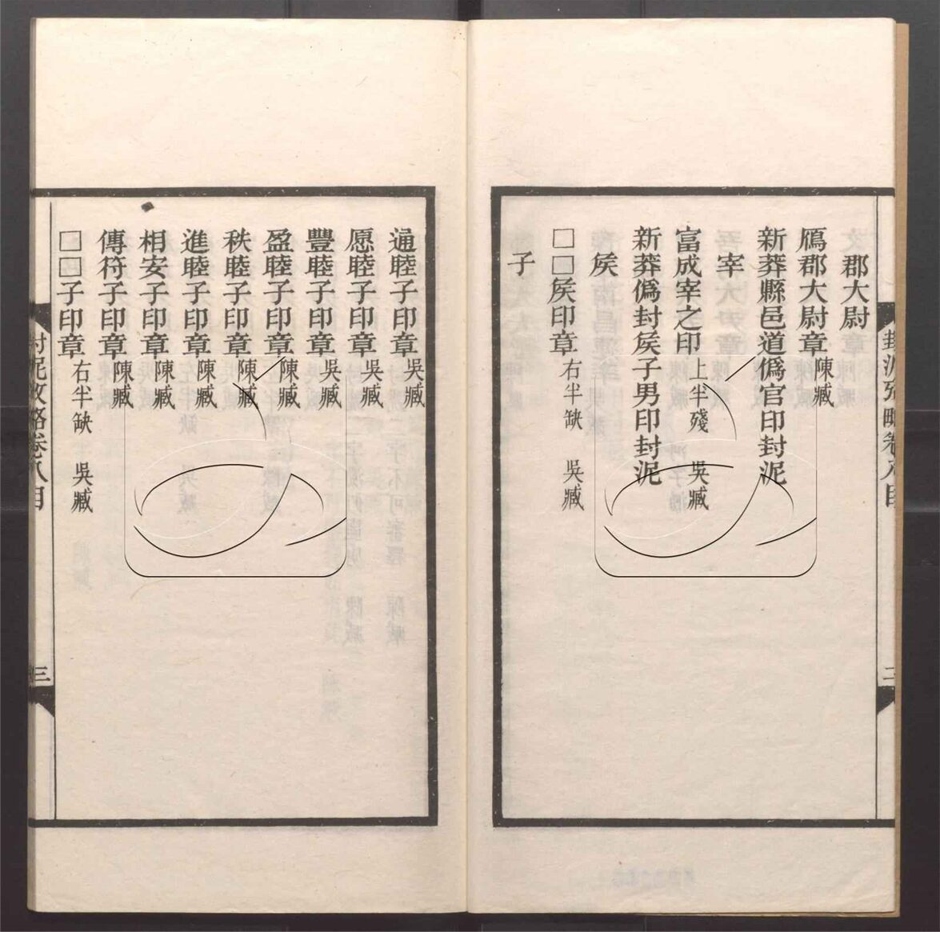 郡大尉
鴈郡大尉章 陳臧
新莽縣邑道僞官印封泥
宰
富成宰之印 上半殘 吳臧
新莽僞封矦子男印封泥
矦
□□矦印章 右半缺 吳臧
子
通睦子印章 吳臧
愿睦子印章 吳臧
豐睦子印章 吳臧
盈睦子印章 陳臧
秩睦子印章 陳臧
進睦子印章 陳臧
相安子印章 陳臧
傳符子印章 陳臧
□□子印章 右半缺 吳臧
封泥攷略卷八目
三